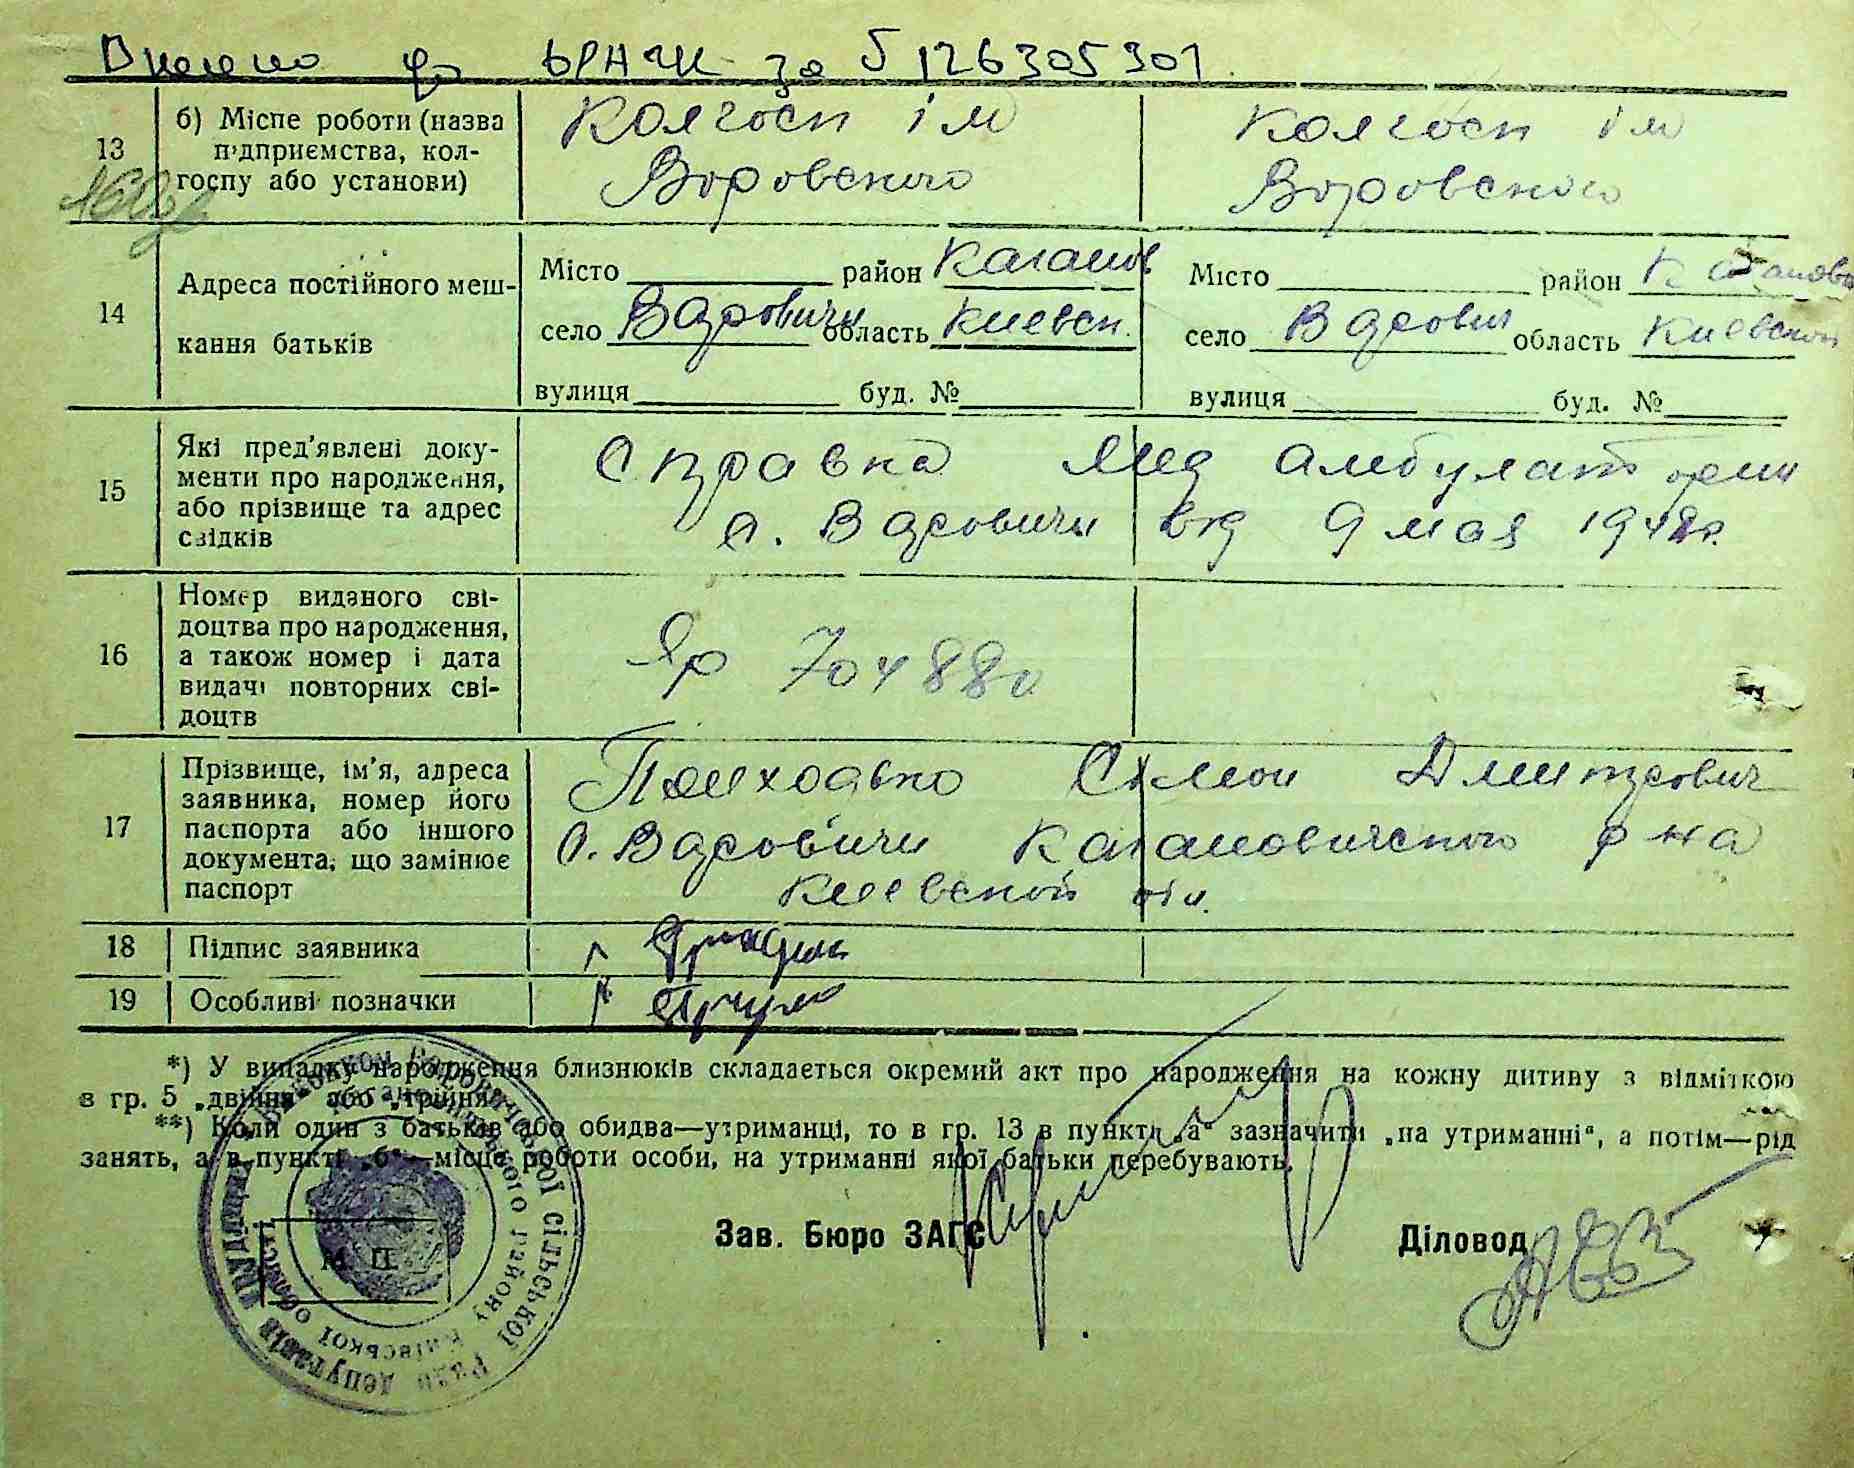 Внесено до ДРАЦС за 126305301.
13
б) Місце роботи (назва підприємства, колгоспу або установи)
Колгосп ім Воровского
Колгосп ім Воровского
14
Адреса постійного мешкання батьків
Місто район Каганов
село Варовичи область Киевск.
вулиця буд. №
Місто район Каганов
село Варович область Киевской
вулиця буд. №
15
Які пред'явлені документи про народження, або прізвище та адрес свідків
Справка амбулатории
с. Варовичи від 9 мая 1948р.
16
Номер виданого свідоцтва про народження, а також номер і дата видачі повторних свідоцтв
704880
17
Прізвище, ім'я, адреса заявника, номер його паспорта або іншого документа, що замінює паспорт
Дмитрович
с. Варовичи Кагановичского р на
Киевской
18
Підпис заявника
19
Особливі позначки
*) У випадку народження близнюків складається окремий акт про народження на кожну дитину з відміткою
в гр. 5 „двійня“ або „трійня“.
**) Коли один з батьків або обидва—утриманці, то в гр. 13 в пункті „а“ зазначити „на утриманні“, а потім—рід
занять, а в пункті „б“—місце роботи особи, на утриманні якої батьки перебувають.
Зав. Бюро ЗАГС
Діловод
М. П.
сільської Ради депутатів
району Київської області